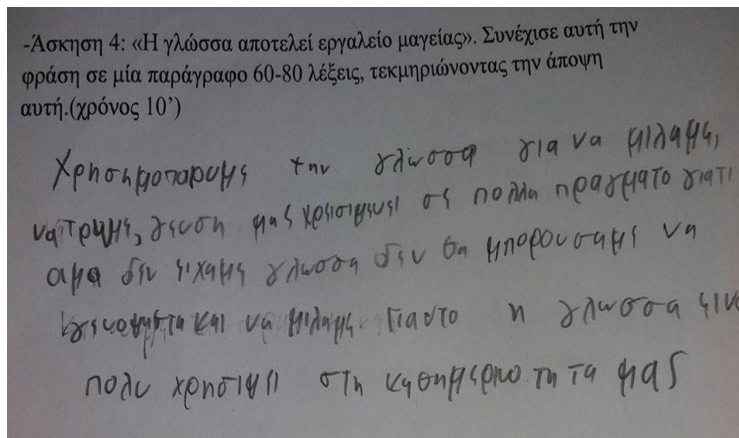 -Άσκηση 4: «Η γλώσσα αποτελεί εργαλείο μαγείας». Συνέχισε αυτή την
φράση σε μία παράγραφο 60-80 λέξεις, τεκμηριώνοντας την άποψη
αυτή.(χρόνος 10’)
την γλωσσα για να μιλαμε,
να τρωμε, γευση μας χρεισιμευει σε πολλα πραγματα γιατι
αμα δεν ειχαμε γλωσσα δεν θα μπορουσαμε να
και να μιλαμε Γιαυτο η γλωσσα ειν
πολυ χρησιμει στη καθημερινοτητα μας